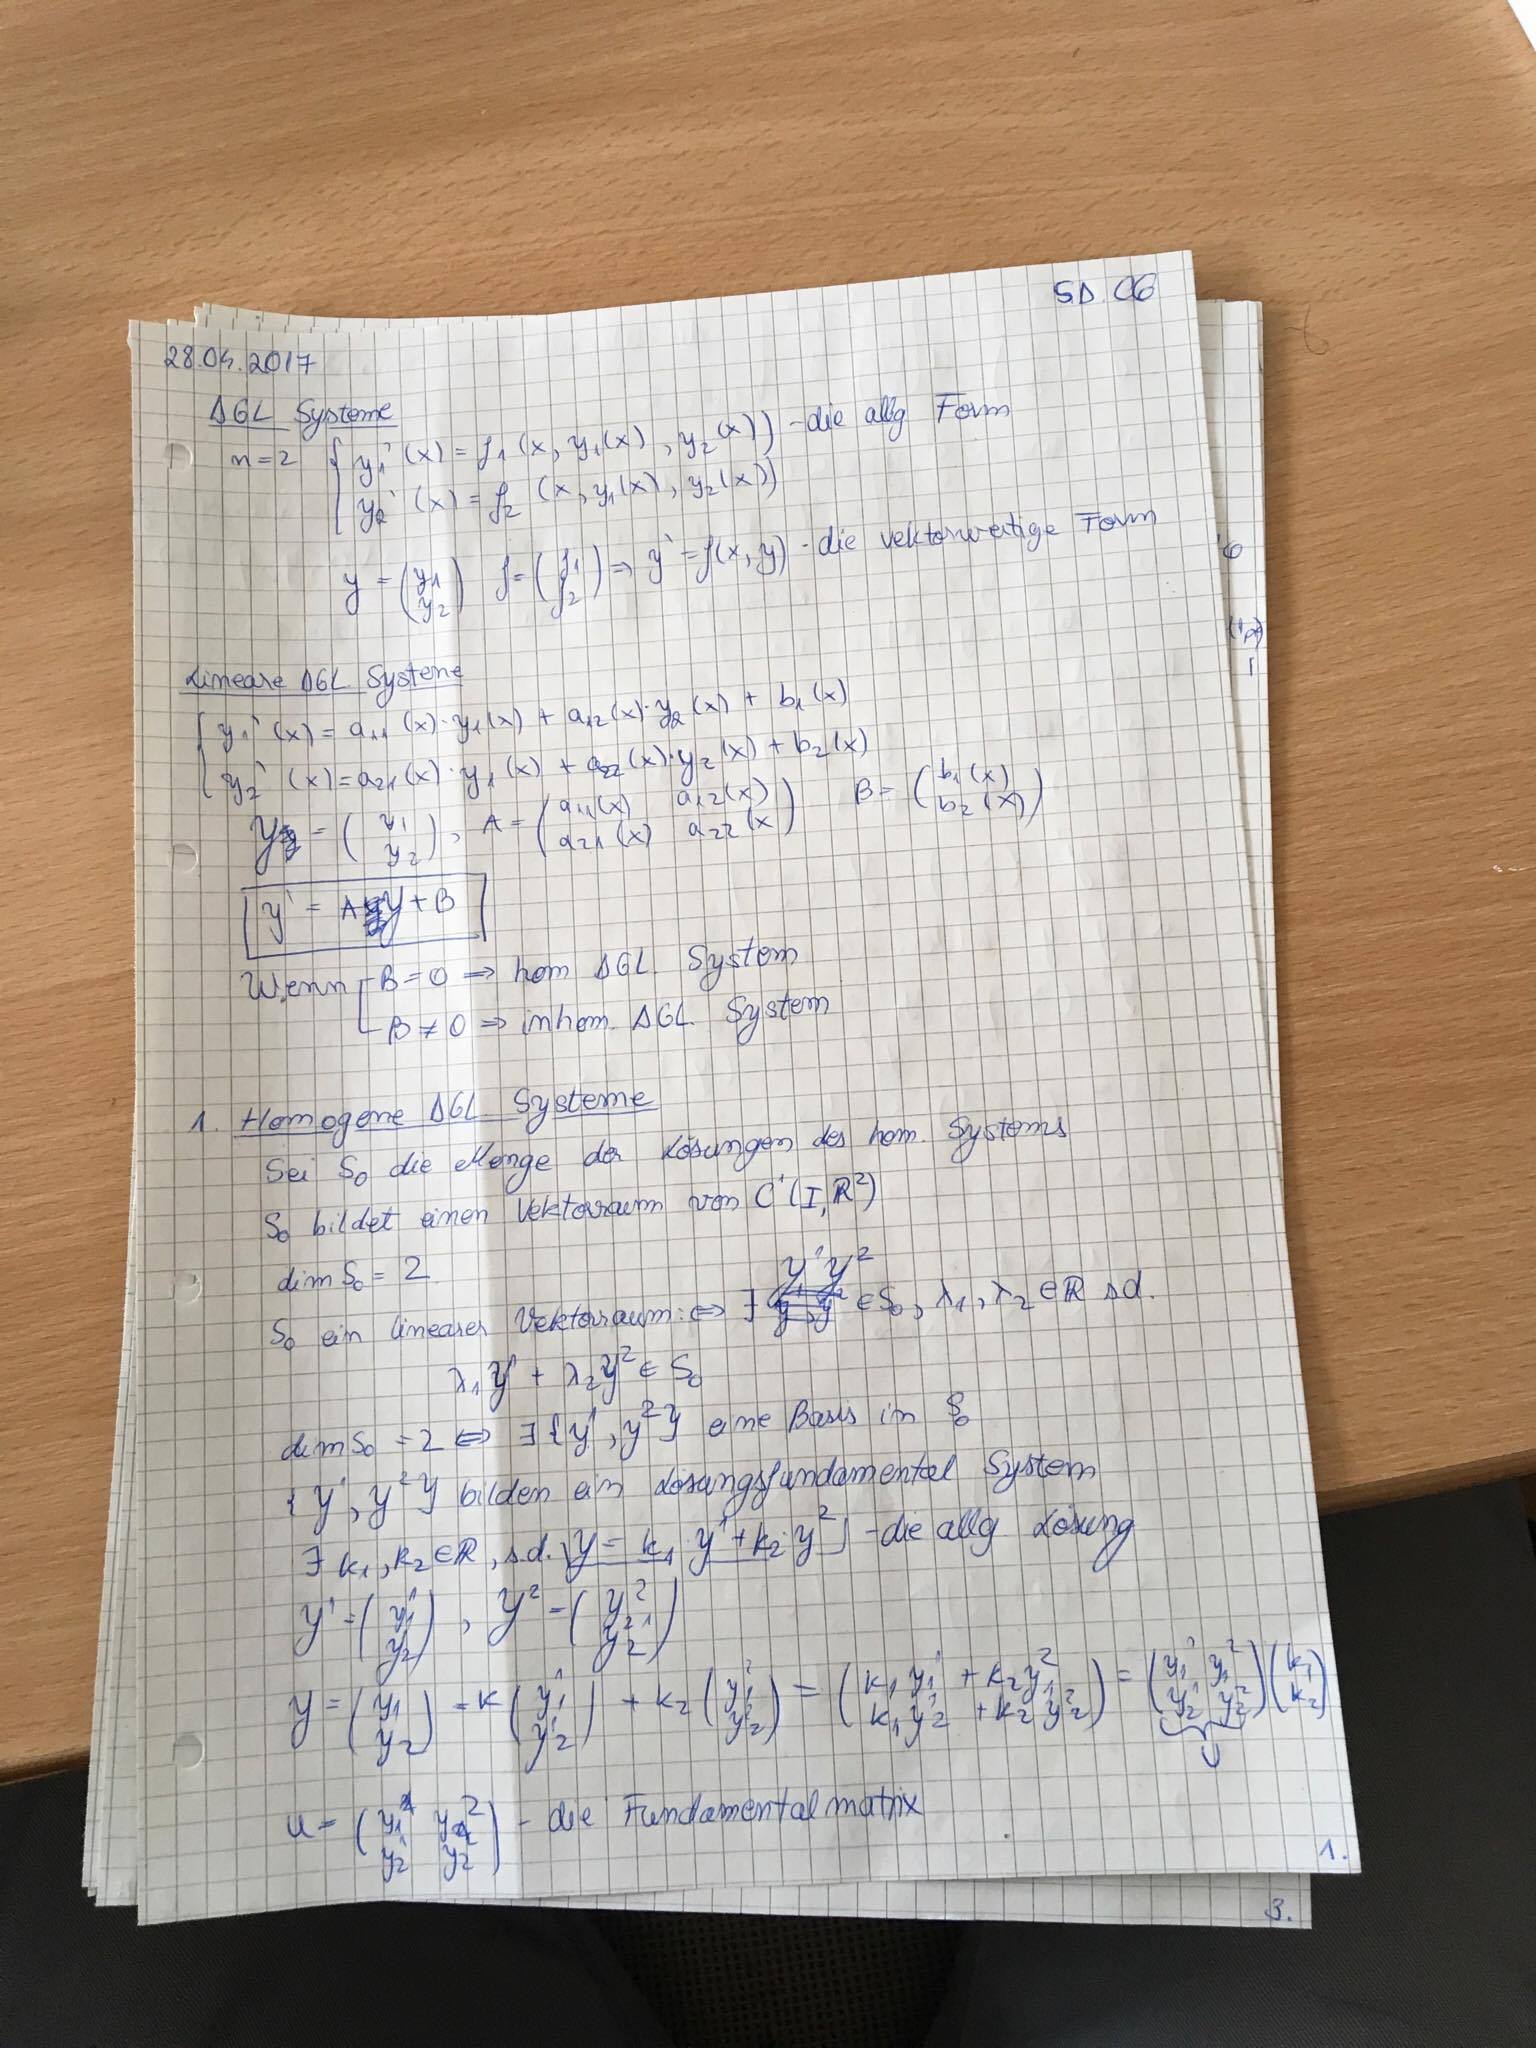 SD. 06
28.04.2017
DGL Systeme
n=2 { y₁'(x) = f₁(x, y₁(x), y₂(x)) - die allg Form
y₂'(x) = f₂(x, y₁(x), y₂(x))
y = (y₁ y₂) f = (f₁ f₂) ⇒ y' = f(x, y) - die vektorwertige Form
Lineare DGL Systeme
{ y₁'(x) = a₁₁(x)·y₁(x) + a₁₂(x)·y₂(x) + b₁(x)
y₂'(x) = a₂₁(x)·y₁(x) + a₂₂(x)·y₂(x) + b₂(x)
Y = (y₁ y₂), A = (a₁₁(x) a₁₂(x) a₂₁(x) a₂₂(x) B = (b₁(x) b₂(x))
y' = AY + B
Wenn B = 0 ⇒ hom DGL System
B ≠ 0 ⇒ inhom. DGL System
1. Homogene DGL Systeme
Sei S₀ die Menge der Lösungen des hom. Systems
S₀ bildet einen Vektorraum von C¹(I, ℝ²)
dim S₀ = 2
S₀ ein linearer Vektorraum: ⇔ ∃ Y¹ Y² ∈ S₀, λ₁, λ₂ ∈ ℝ s.d.
λ₁Y¹ + λ₂Y² ∈ S₀
dim S₀ = 2 ⇔ ∃ {Y¹, Y²} eine Basis in S₀
{Y¹, Y²} bilden ein Lösungsfundamental System
∃ k₁, k₂ ∈ ℝ, s.d. Y = k₁·Y¹ + k₂·Y² - die allg Lösung
Y¹ = (y₁¹ y₂¹), Y² = (y₁² y₂²)
Y = (y₁ y₂) = k (y₁¹ y₂¹) + k₂ (y₁² y₂²) = (k₁y₁¹ + k₂y₁² k₁y₂¹ + k₂y₂²) = (y₁¹ y₁² y₂¹ y₂²)(k₁ k₂)
U
U = (y₁¹ y₁² y₂¹ y₂²) - die Fundamentalmatrix
1.
3.